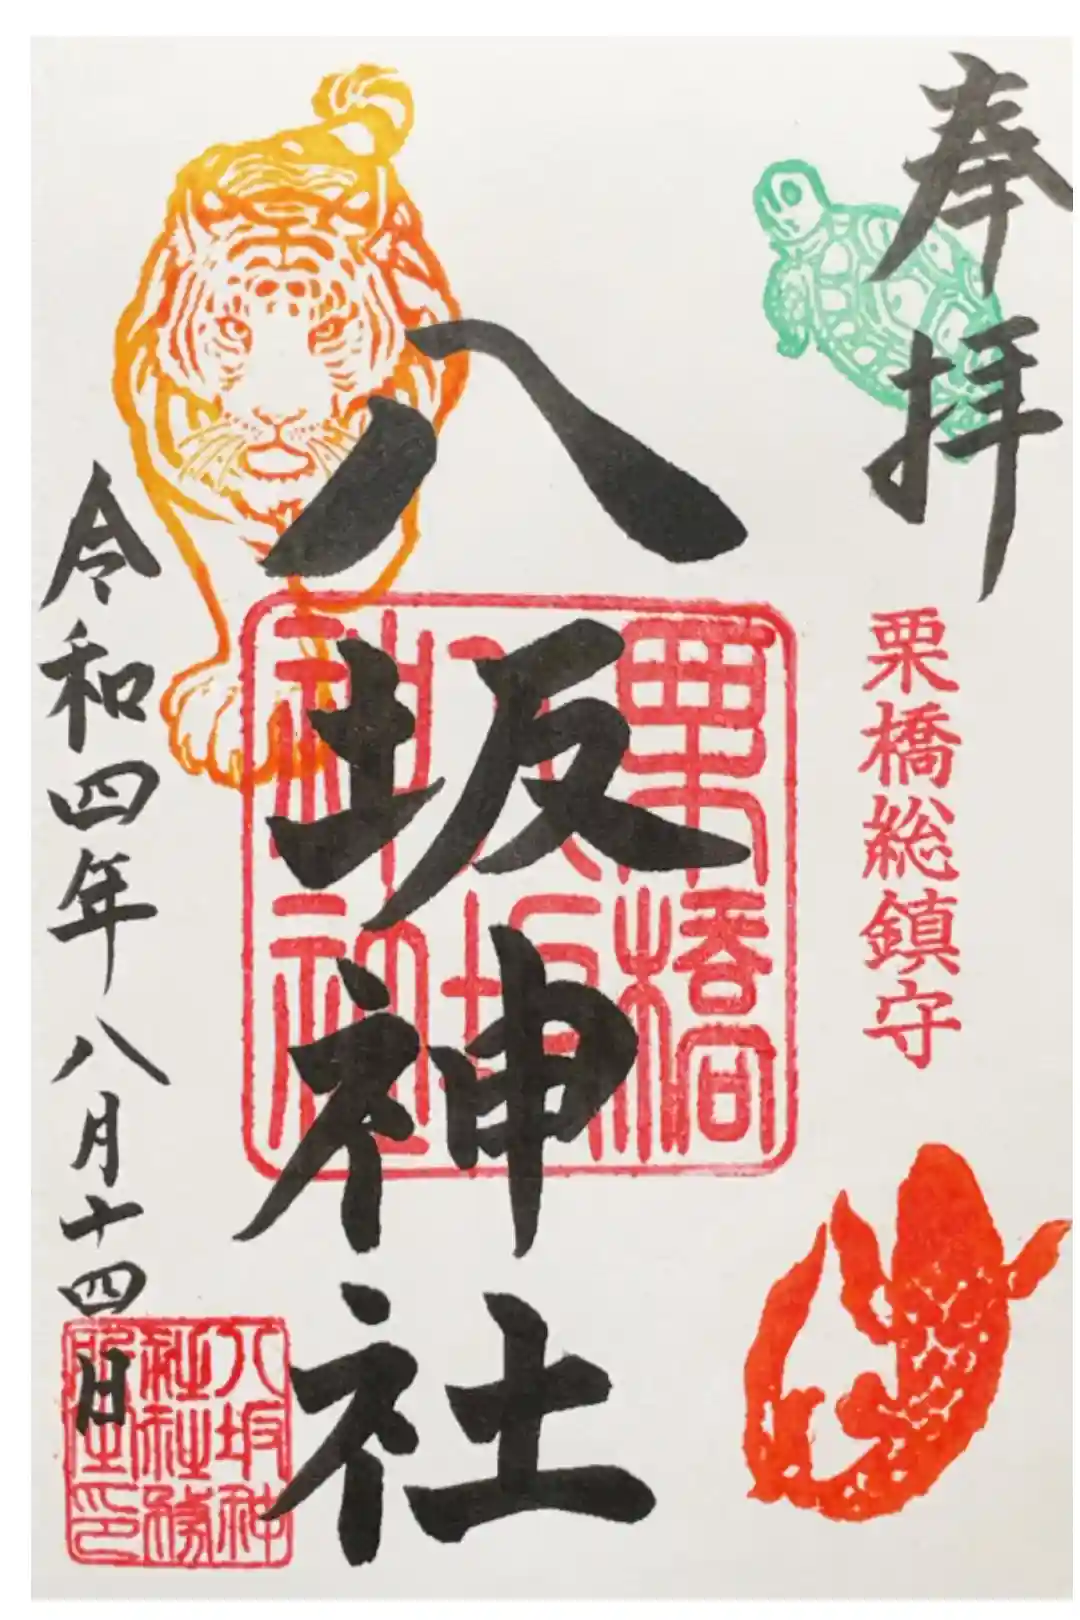 奉拝
栗橋総鎮守
八坂神社
栗橋
八坂
神社
令和四年八月十四日
八坂神
社社務